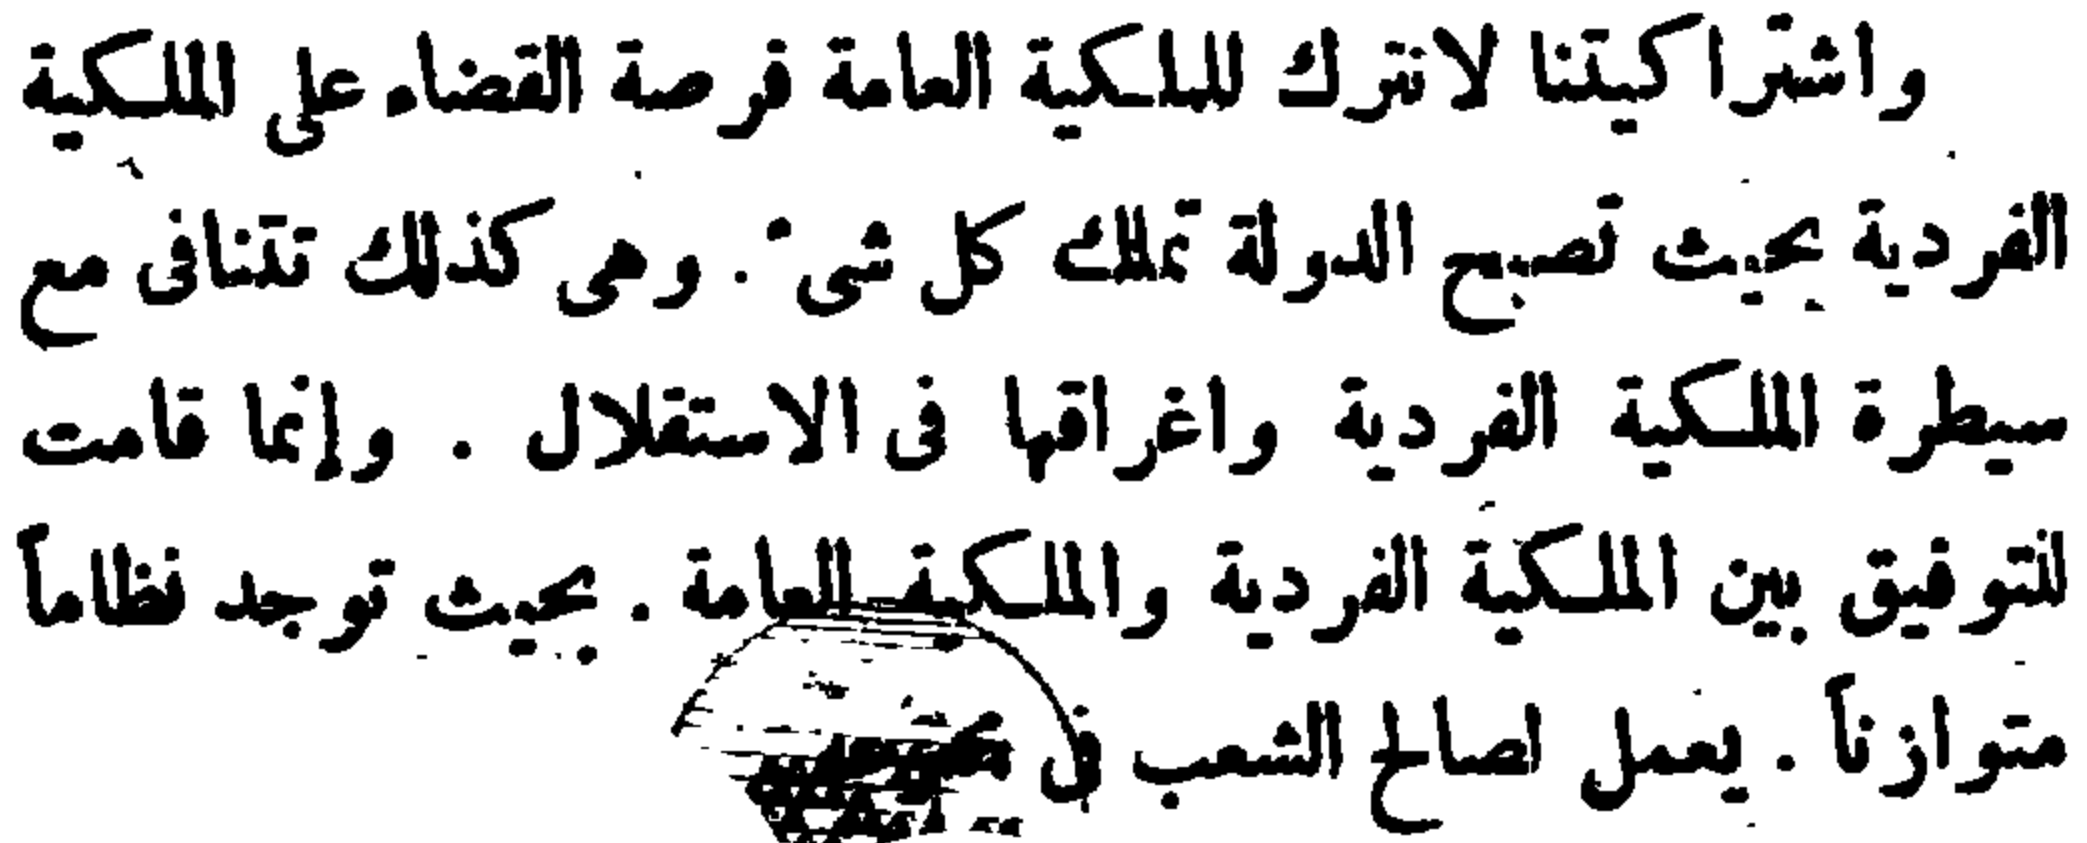 واشتراكيتنا لانترك للملكية العامة فرصة القضاء على الملكية
الفردية بحيث تصبح الدولة تملك كل شىء . وهى كذلك تتنافى مع
سيطرة الملكية الفردية واغراقها فى الاستقلال . وإنما قامت
للتوفيق بين الملكية الفردية والملكية العامة . بحيث توجد نظاماً
متوازناً . يعمل لصالح الشعب فى